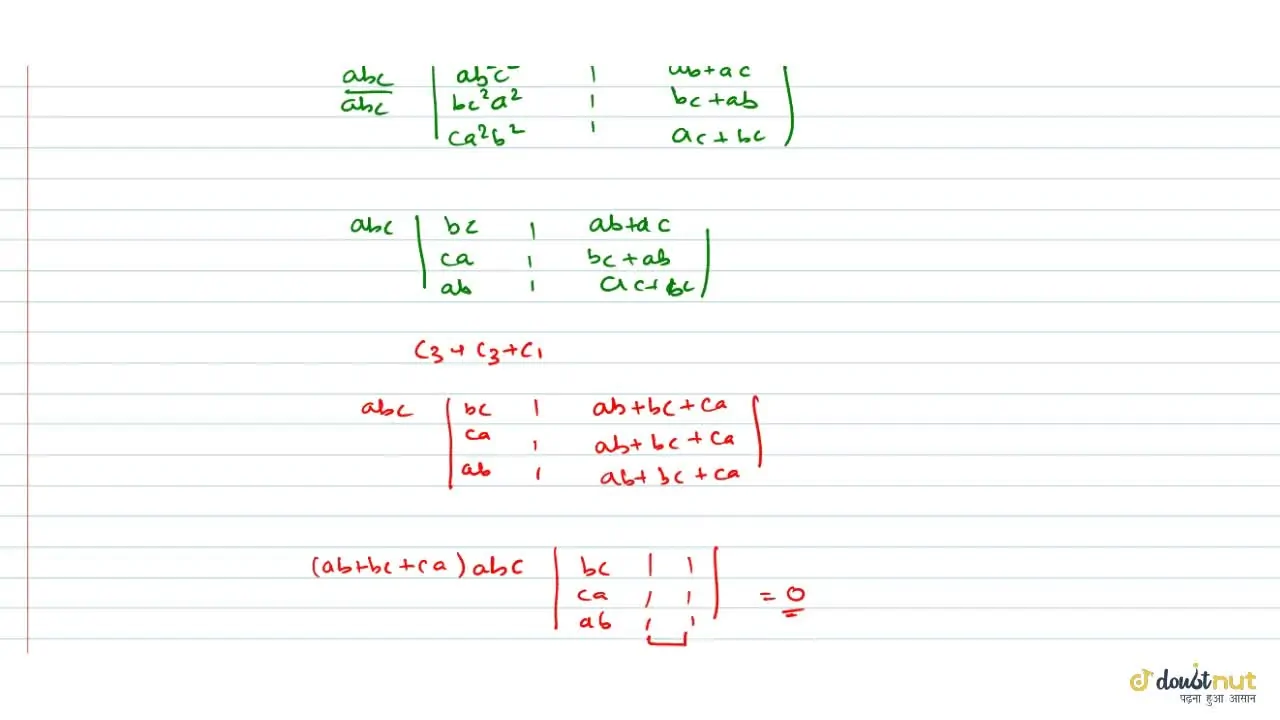 abc | ab²c² 1 ab+ac |
abc | bc²a² 1 bc+ab |
| ca²b² 1 ac+bc |
abc | bc 1 ab+ac |
| ca 1 bc+ab |
| ab 1 ac+bc |
C3 → C3+C1
abc | bc 1 ab+bc+ca |
| ca 1 ab+bc+ca |
| ab 1 ab+bc+ca |
(ab+bc+ca) abc | bc 1 1 |
| ca 1 1 | = 0
| ab 1 1 |
doubtnut
पढ़ना हुआ आसान